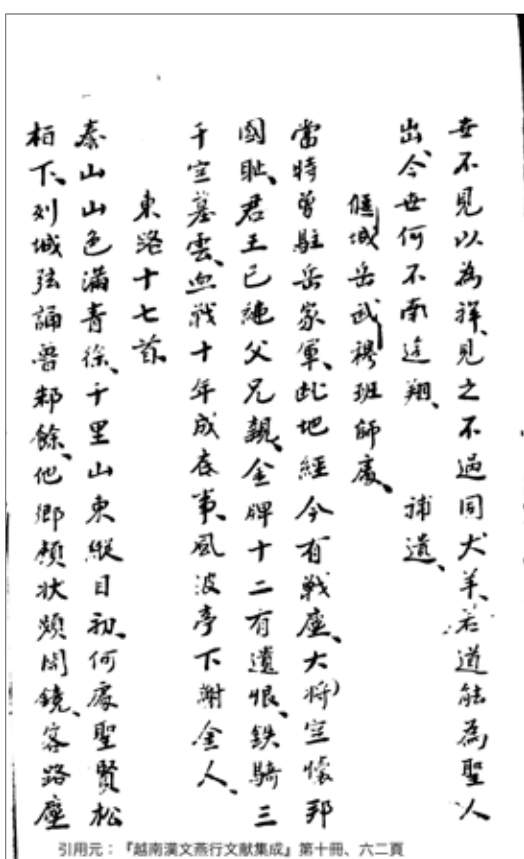 世不見以為祥、見之不過同犬羊、若道能為聖人
出、今世何不南遊翔、 補遺、
偃城岳武穆班師處、
當時曾駐岳家軍、此地經今有戰塵、大将空懷邦
國耻、君王已絶父兄親、金牌十二有遺恨、鉄騎三
千空墓雲、血戰十年成底事、風波亭下謝金人、
東路十七首
泰山山色滿青徐、千里山東縱目初、何處聖賢松
栢下、別城弦誦魯鄒餘、他鄉顏狀頻開鏡、客路塵
引用元：『越南漢文燕行文献集成』第十冊、六二頁